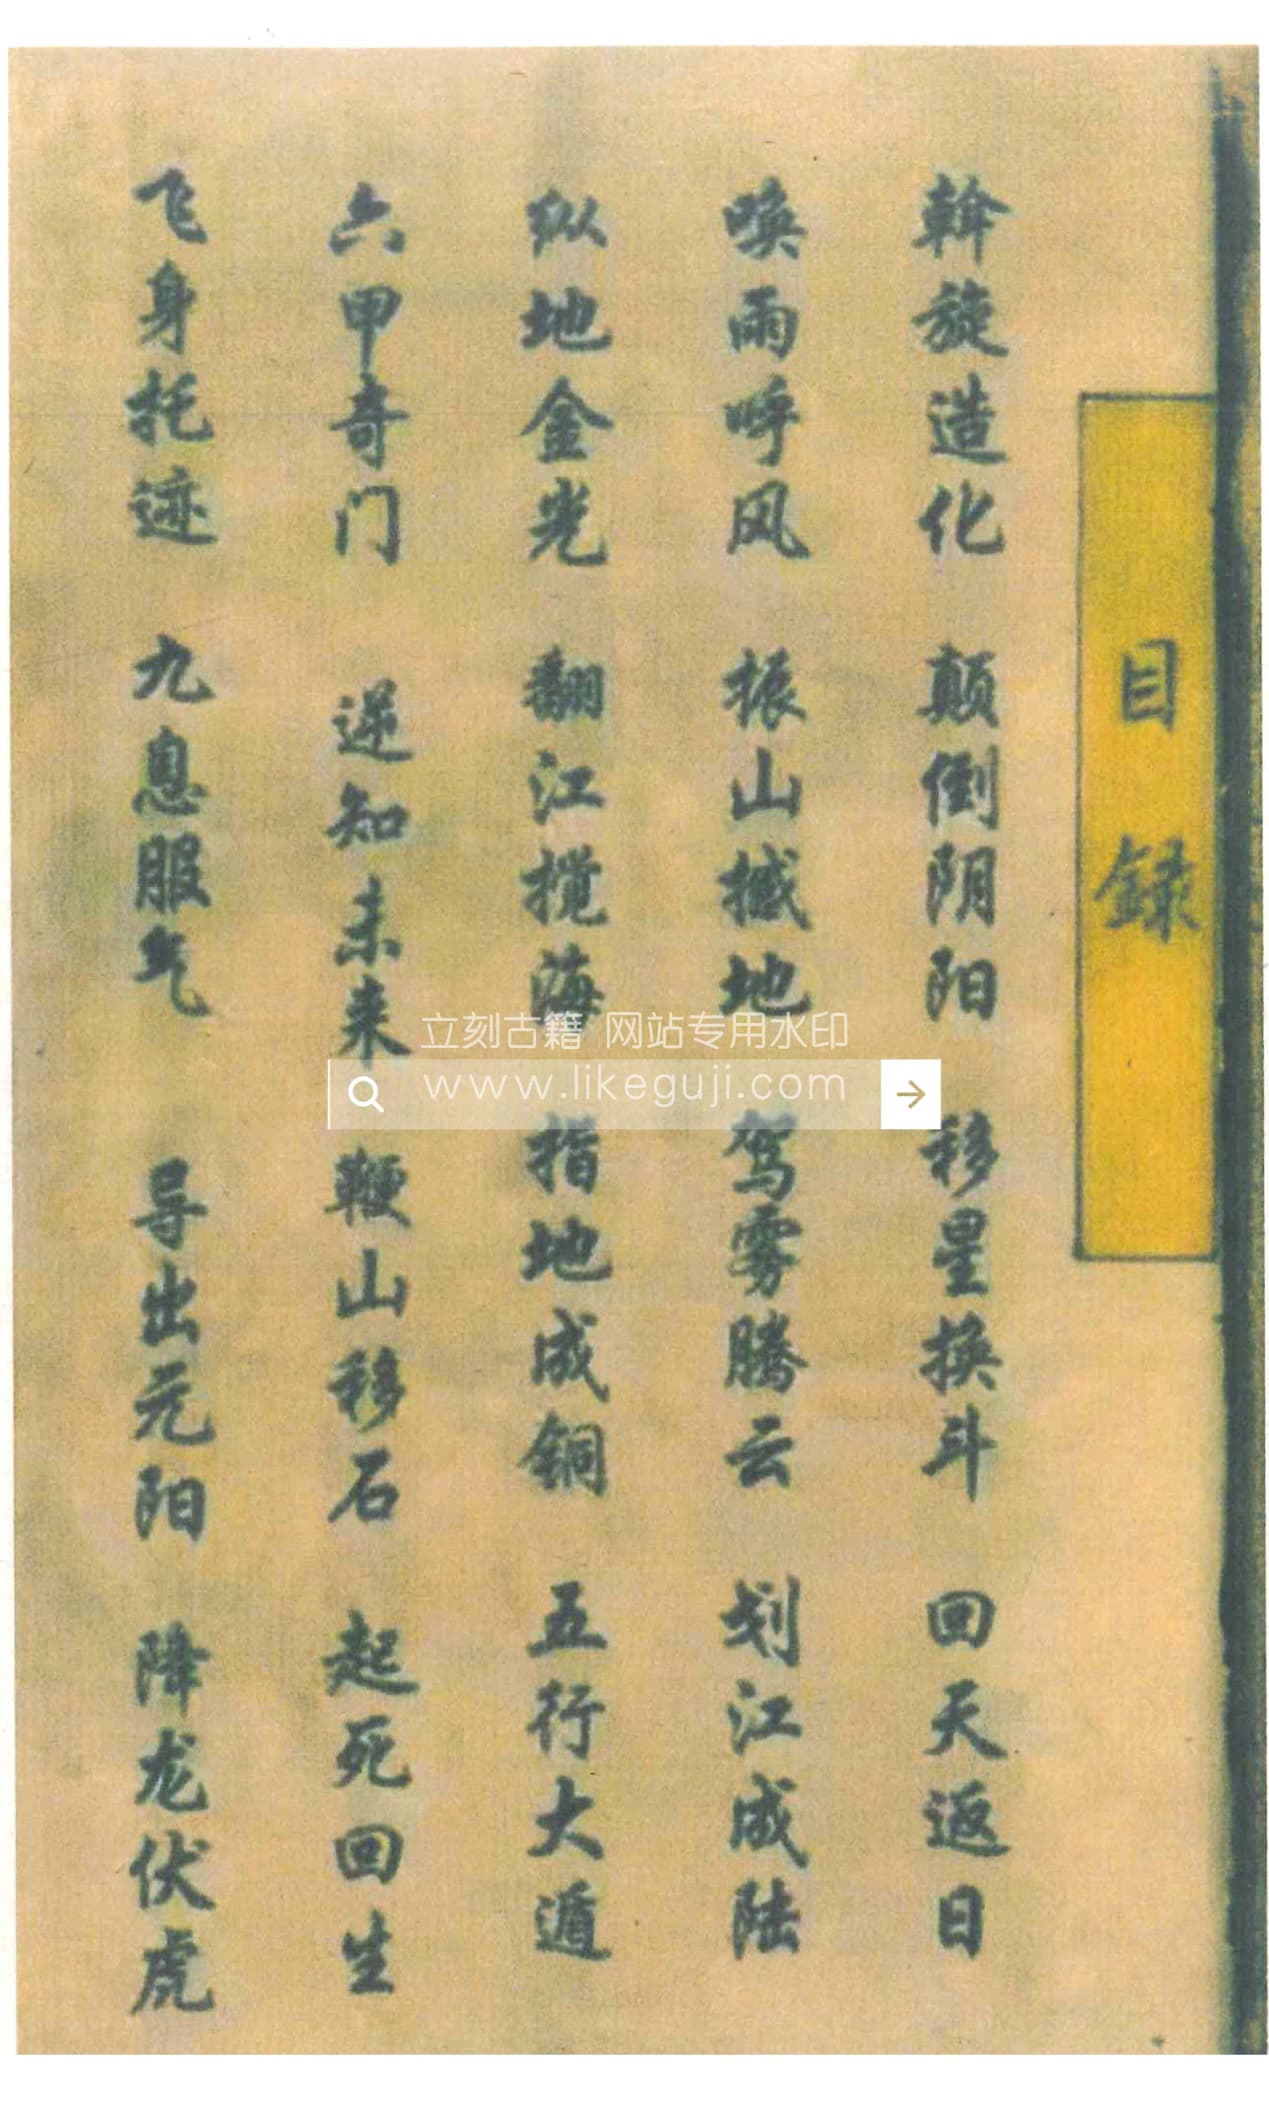 目録
斡旋造化 颠倒阴阳 移星换斗 回天返日
唤雨呼风 振山撼地 驾雾腾云 划江成陆
纵地金光 翻江搅海 指地成钢 五行大遁
六甲奇门 逆知未来 鞭山移石 起死回生
飞身托迹 九息服气 导出元阳 降龙伏虎
立刻古籍 网站专用水印
www.likeguji.com